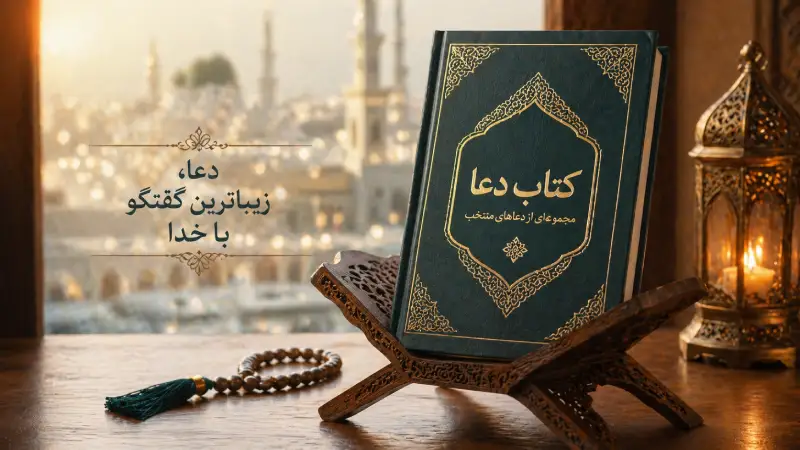 دعا،
زیباترین گفتگو
با خدا
کتاب دعا
مجموعه‌ای از دعاهای منتخب